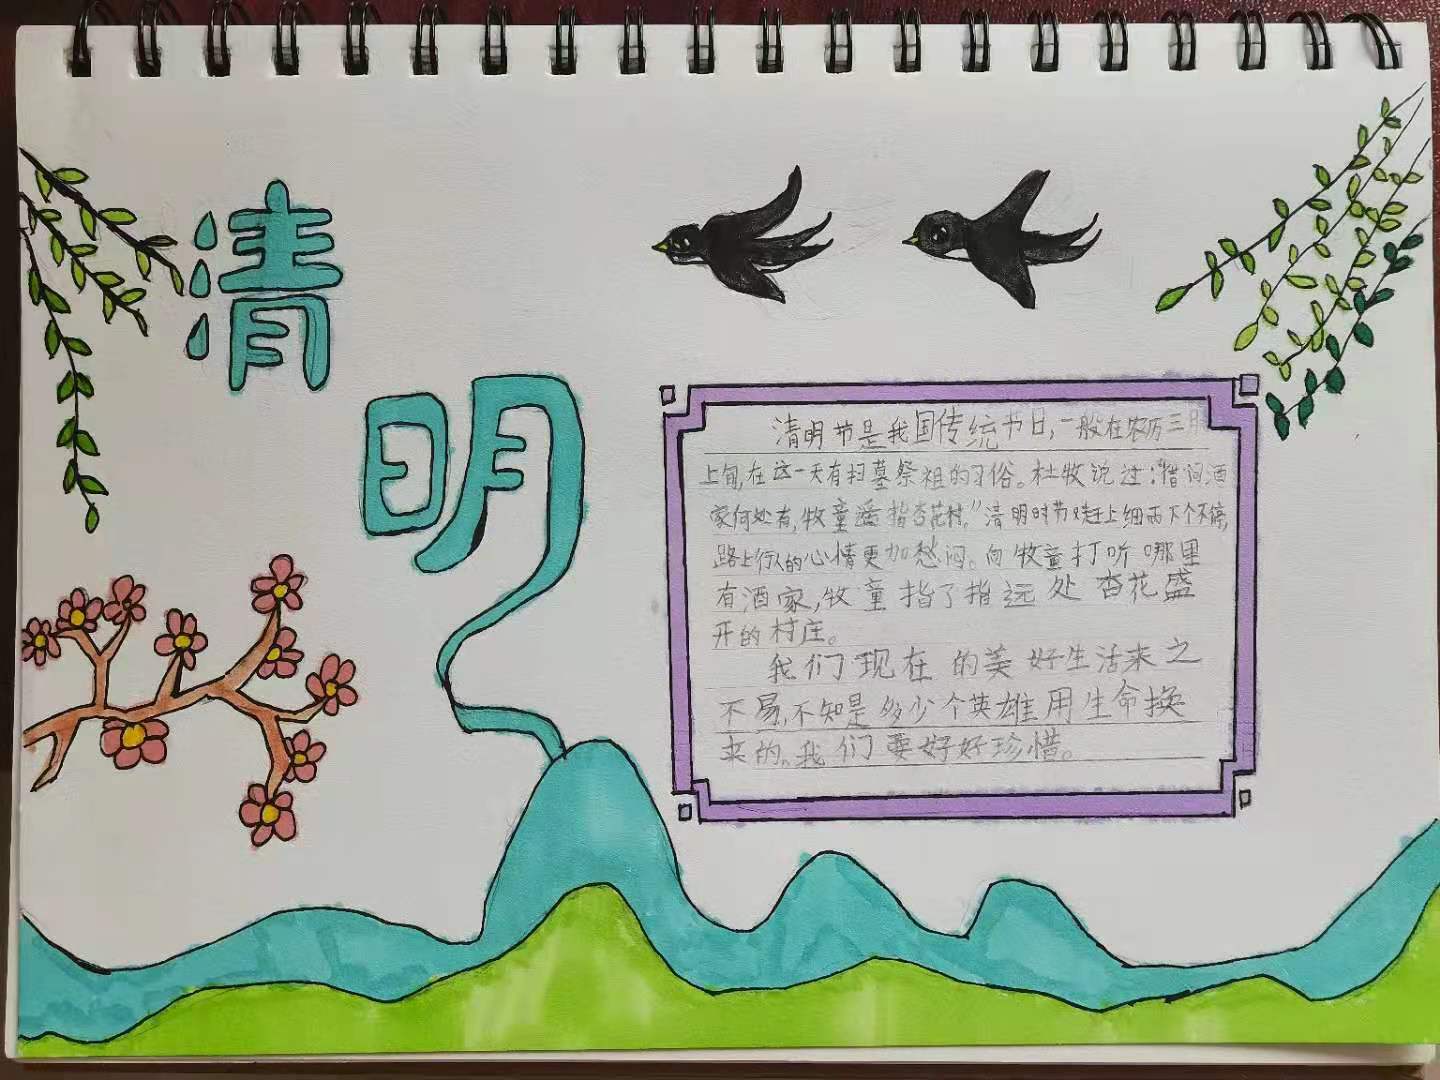 清明
清明节是我国传统节日,一般在农历三月
上旬,在这一天有扫墓祭祖的习俗。杜牧说过:“借问酒
家何处有,牧童遥指杏花村。”清明时节又赶上细雨下个不停,
路上行人的心情更加愁闷。向牧童打听哪里
有酒家,牧童指了指远处杏花盛
开的村庄。
我们现在的美好生活来之
不易,不知是多少个英雄用生命换
来的。我们要好好珍惜。